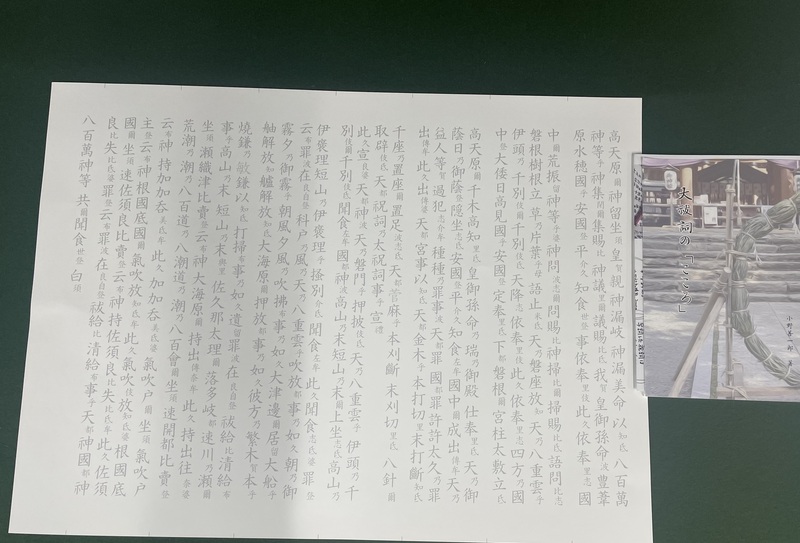 高天原爾神留坐須皇賀親神漏岐神漏美命以知氐八百萬
神等乎神集閇爾集賜比神議里爾議賜比氐我賀皇御孫命波豊葦
原水穂國乎安國登平介久知食世登事依奉里伎此久依奉里志國
中爾荒振留神等乎婆神問波志爾問賜比神掃比爾掃賜比氐語問比志
磐根樹根立草乃片葉乎母語止米氐天乃磐座放知天乃八重雲乎
伊頭乃千別伎爾千別伎氐天降志依奉里伎此久依奉里志四方乃國
中登大倭日高見國乎安國登定奉里氐下都磐根爾宮柱太敷立氐
高天原爾千木高知里氐皇御孫命乃瑞乃御殿仕奉里氐天乃御
蔭日乃御蔭登隠坐志氐安國登平介久知食左牟國中爾成出傳牟天乃
益人等賀過犯志介牟種種乃罪事波天都罪國都罪許許太久乃罪
出傳牟此久出傳婆天都宮事以知氐天都金木乎本打切里末打斷知氐
千座乃置座爾置足波志氐天都菅麻乎本刈斷末刈切里氐八針爾
取辟伎氐天都祝詞乃太祝詞事乎宣禮
此久宣良婆天都神波天乃磐門乎押披伎氐天乃八重雲乎伊頭乃千
別伎爾千別伎氐聞食左牟國都神波高山乃末短山乃末爾上坐志氐高山乃
伊褒理短山乃伊褒理乎掻別介氐聞食左牟此久聞食志氐婆罪登
云布罪波在良自登科戸乃風乃天乃八重雲乎吹放都事乃如久朝乃御
霧夕乃御霧乎朝風夕風乃吹拂布事乃如久大津邊爾居留大船乎
舳解放知艫解放知氐大海原爾押放都事乃如久彼方乃繁木賀本乎
燒鎌乃敏鎌以知氐打掃布事乃如久遺留罪波在良自登祓給比清給布
事乎高山乃末短山乃末与里佐久那太理爾落多岐都速川乃瀬爾
坐須瀬織津比賣登云布神大海原爾持出傳奈牟此久持出往奈婆
荒潮乃潮乃八百道乃八潮道乃潮乃八百會爾坐須速開都比賣登
云布神持加加呑美氐牟此久加加呑美氐婆氣吹戸爾坐須氣吹戸
主登云布神根國底國爾氣吹放知氐牟此久氣吹放知氐婆根國底
國爾坐須速佐須良比賣登云布神持佐須良比失比氐牟此久佐須
良比失比氐婆罪登云布罪波在良自登祓給比清給布事乎天都神國都神
八百萬神等共爾聞食世登白須
大祓詞の「こころ」
小野善一郎 著